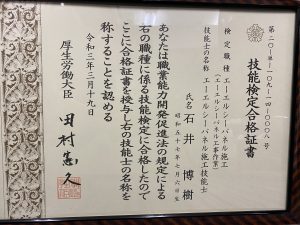 技能検定合格証書
検定職種 エーエルシーパネル施工
(エーエルシーパネル工事作業)
技能士の名称 エーエルシーパネル施工技能士
氏名 石井 博樹
昭和五十七年七月六日生
あなたは職業能力開発促進法の規定による
右の職種に係る技能検定に合格したので
ここに合格証書を授与し右の技能士の名称を
称することを認める
令和三年三月十九日
厚生労働大臣 田村憲久